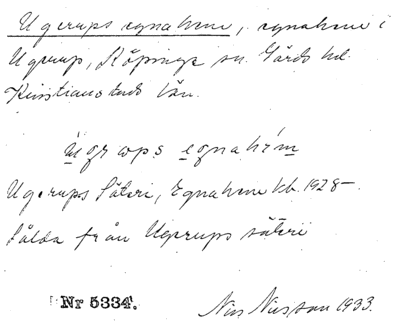 Ugerups egnahem, egnahem i
Ugerup, Köpinge sn. Gärds hd.
Kristianstads län.
Ugerups Säteri, Egnahem kb. 1928-
Sålda från Ugerups säteri
Nr 5334.
Nils Nilsson 1933.